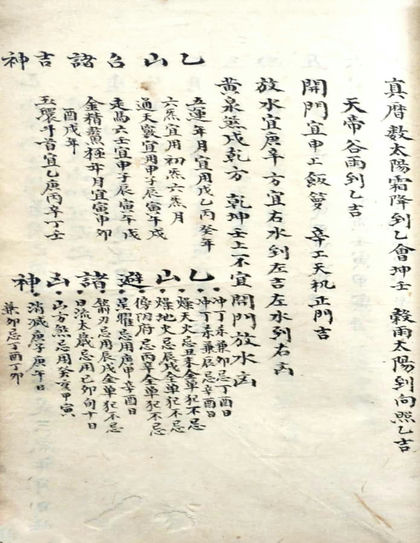 真曆數太陽霜降到乙會坤壬 穀雨太陽到向照乙吉
天帝谷雨到乙吉
開門宜申上飯籮 辛上天机正門吉
放水宜庚辛方宜右水到左吉左水到右凶
黃泉煞戌乾方 乾坤壬上不宜開門放水凶
乙山台諸吉神
五運年月宜用戊乙丙癸年
六炁宜用初炁六炁月
通天竅宜用甲子辰寅午戌
走馬六壬宜甲子辰寅午戌
金精鰲極年月宜寅申卯
酉戌年
玉環斗首宜乙庚丙辛丁壬
乙山避諸凶神
冲丁未兼卯忌丁酉日
冲丁未兼辰忌辛酉日
燥天火忌丑未全單犯不忌
燥地火忌辰戌全單犯不忌
傍阴府忌丙辛全單犯不忌
星曜忌用庚申辛酉日
箭刃忌用辰戌全單犯不忌
日流太歲忌用己卯旬十日
山方煞忌用癸亥甲寅
消滅庚子庚午日
兼卯忌丁酉丁卯